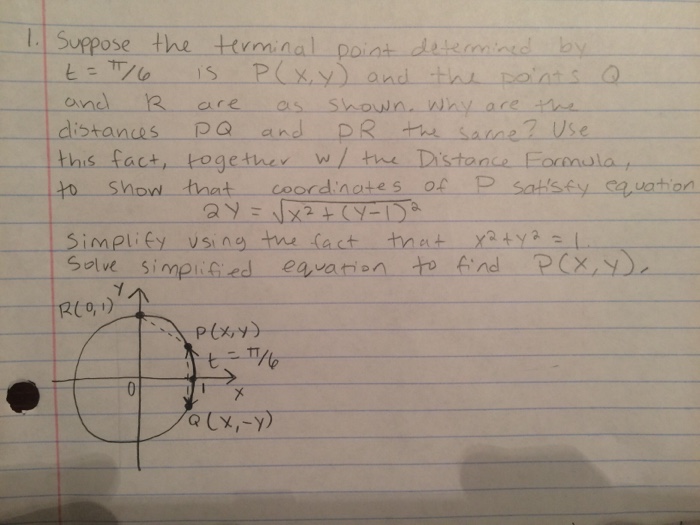 1. Suppose the terminal point determined by
t = π/6 is P(x,y) and the points Q
and R are as shown. Why are the
distances PQ and PR the same? Use
this fact, together w/ the Distance Formula,
to show that coordinates of P satisfy equation
2Y = √x² + (Y-1)²
Simplify using the fact that x² + y² = 1.
Solve simplified equation to find P(x,y).
Y
R(0,1)
P(x,y)
t = π/6
0
1
x
Q(x,-y)